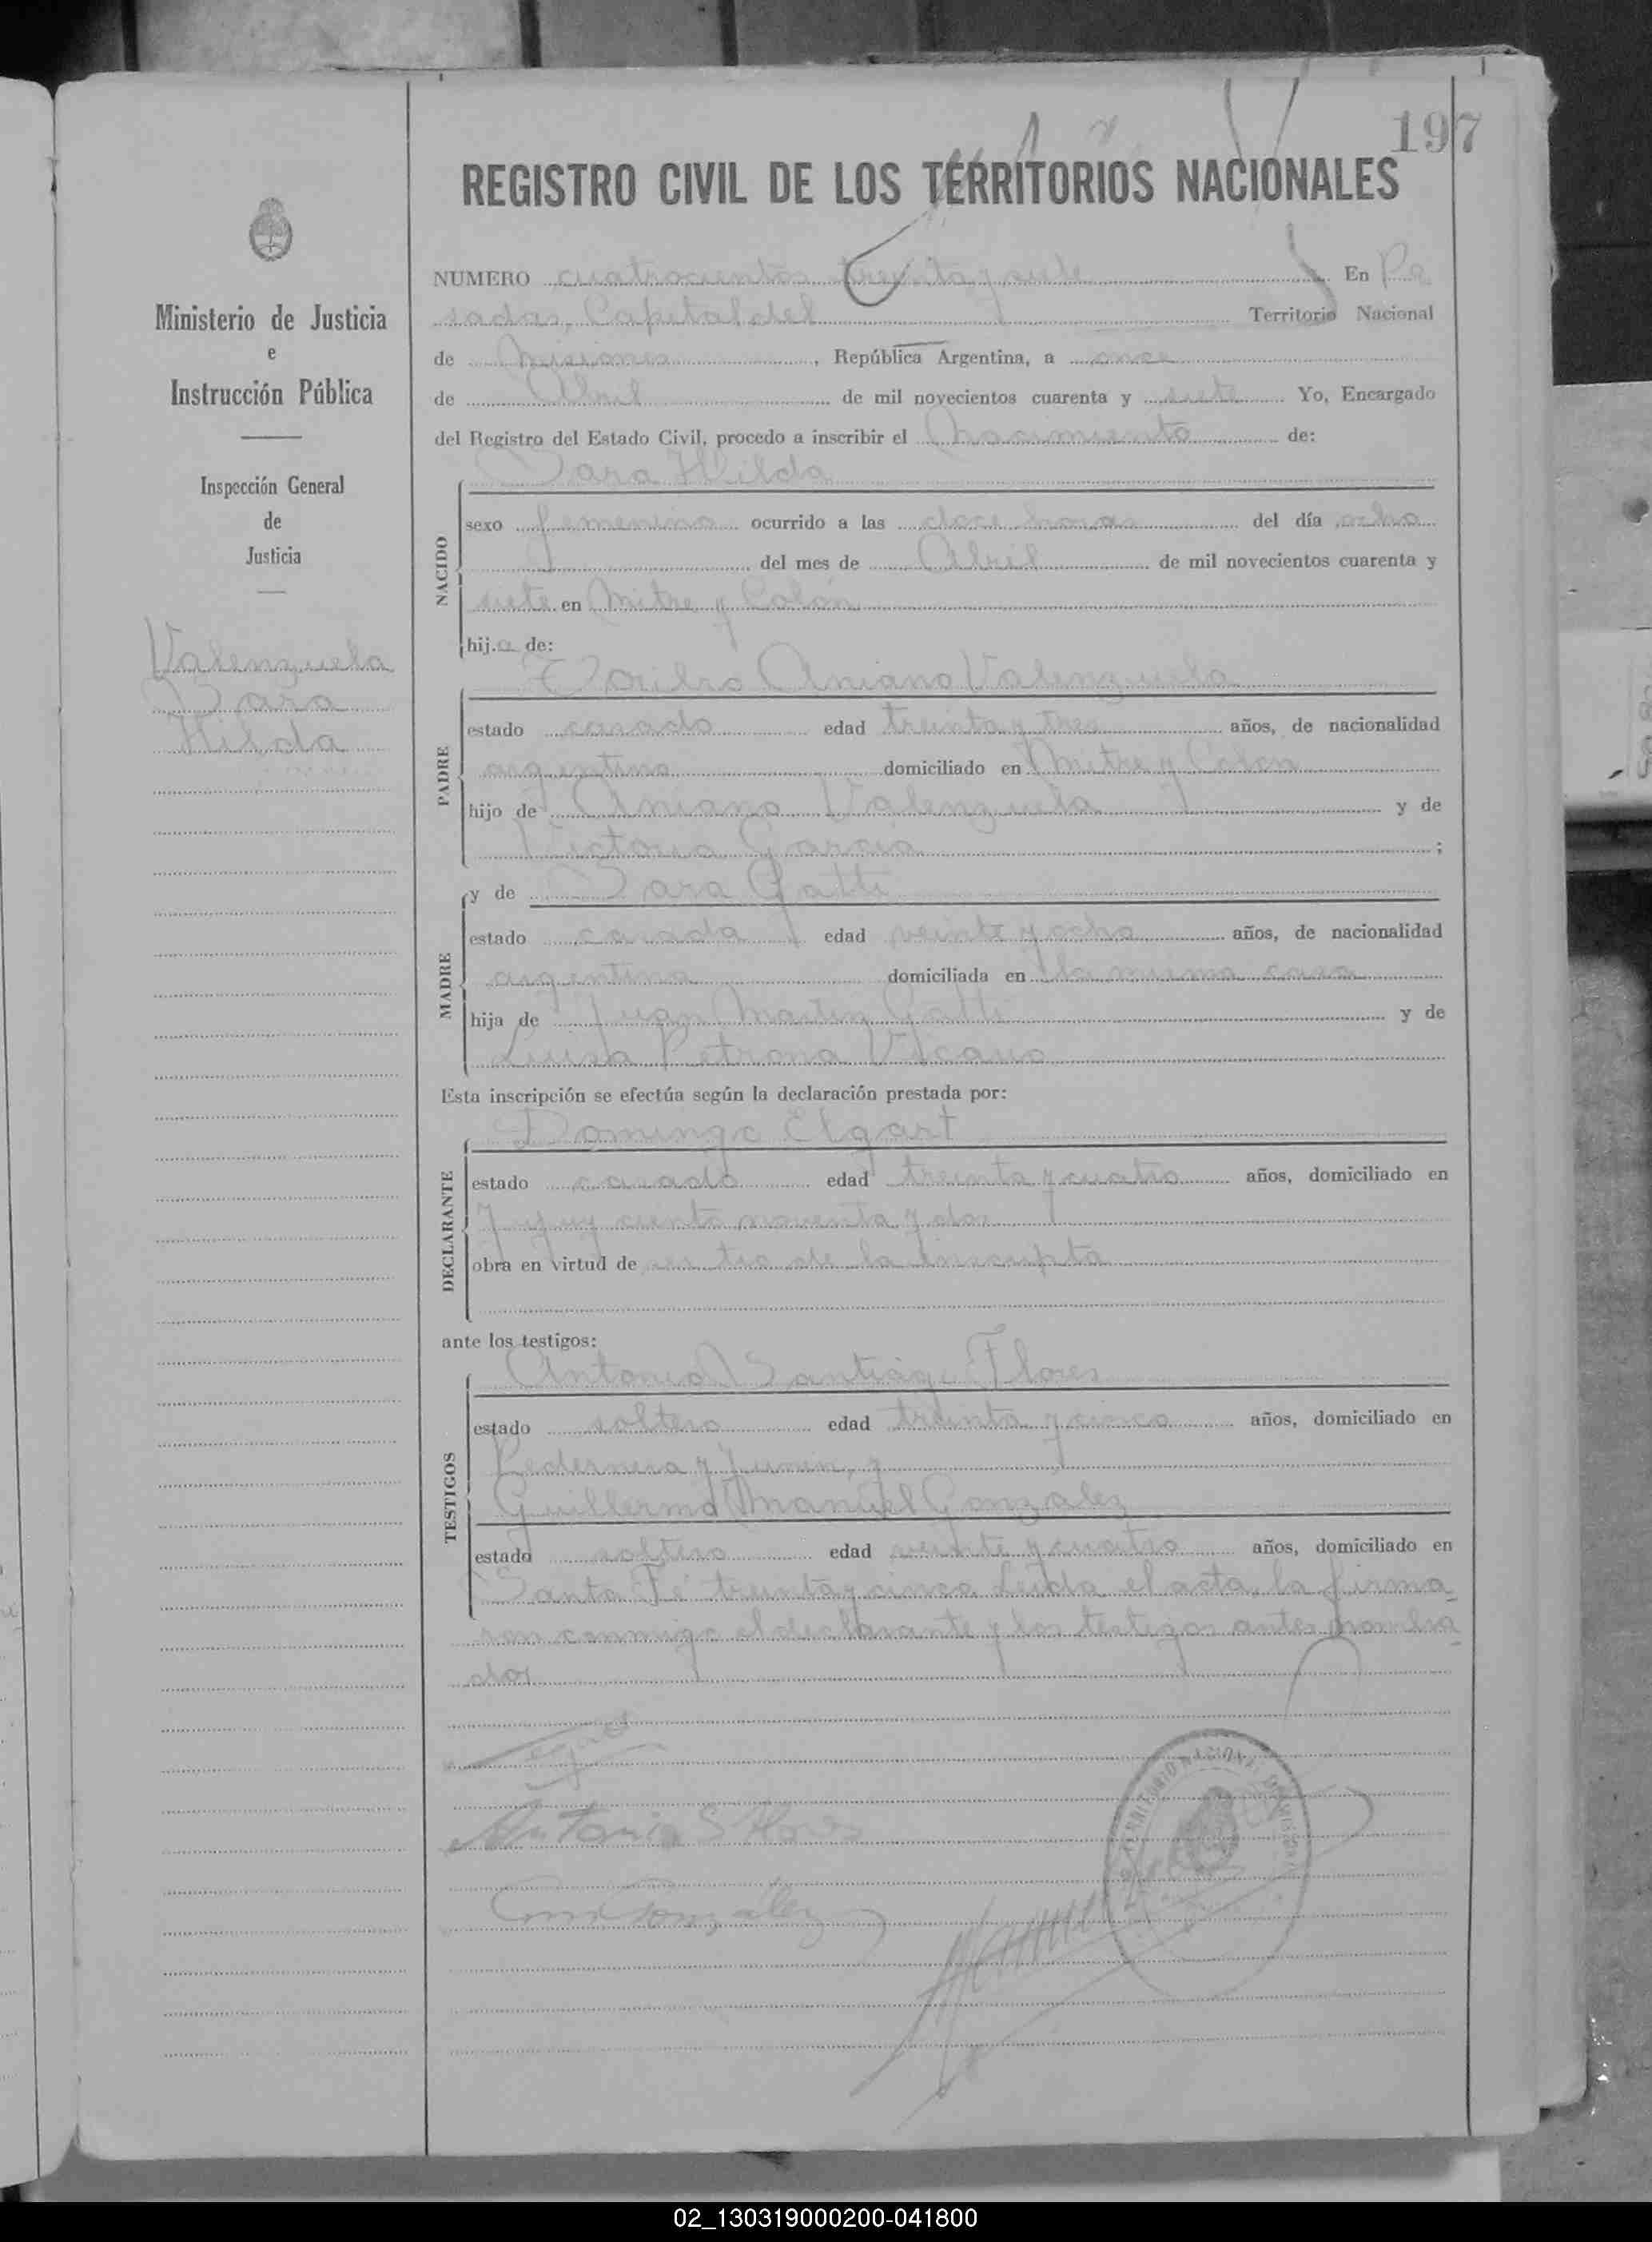 197
REGISTRO CIVIL DE LOS TERRITORIOS NACIONALES
Ministerio de Justicia
e
Instrucción Pública
Inspección General
de
Justicia
Valenzuela
Sara
Hilda
NUMERO cuatrocientos treinta y siete En Po
sadas, Capital del Territorio Nacional
de Misiones, República Argentina, a once
de Abril de mil novecientos cuarenta y siete Yo, Encargado
del Registro del Estado Civil, procedo a inscribir el Nacimiento de:
Sara Hilda
NACIDO
sexo femenino ocurrido a las doce horas del día ocho
del mes de Abril de mil novecientos cuarenta y
siete en Mitre y Colón
hija de:
Aniano Valenzuela
PADRE
estado casado edad treinta y tres años, de nacionalidad
argentina domiciliado en Mitre y Colón
hijo de Aniano Valenzuela y de
Victoria García;
y de Sara Gatti
MADRE
estado casada edad veinte y ocho años, de nacionalidad
argentina domiciliada en la misma casa
hija de Juan Martín Gatti y de
Luisa Petrona
Esta inscripción se efectúa según la declaración prestada por:
Domingo Elgart
DECLARANTE
estado casado edad treinta y cuatro años, domiciliado en
Jujuy ciento noventa y dos
obra en virtud de ser tío de la inscripta
ante los testigos:
Antonio Santiago Flores
TESTIGOS
estado soltero edad treinta y cinco años, domiciliado en
Pedernera y Junín, y
Guillermo Manuel González
estado soltero edad veinte y cuatro años, domiciliado en
Santa Fé treinta y cinco. Leída el acta, la firma
ron conmigo el declarante y los testigos antes nombra
dos
Antonio S Flores
González
TERRITORIO NACIONAL DE MISIONES
02_130319000200-041800